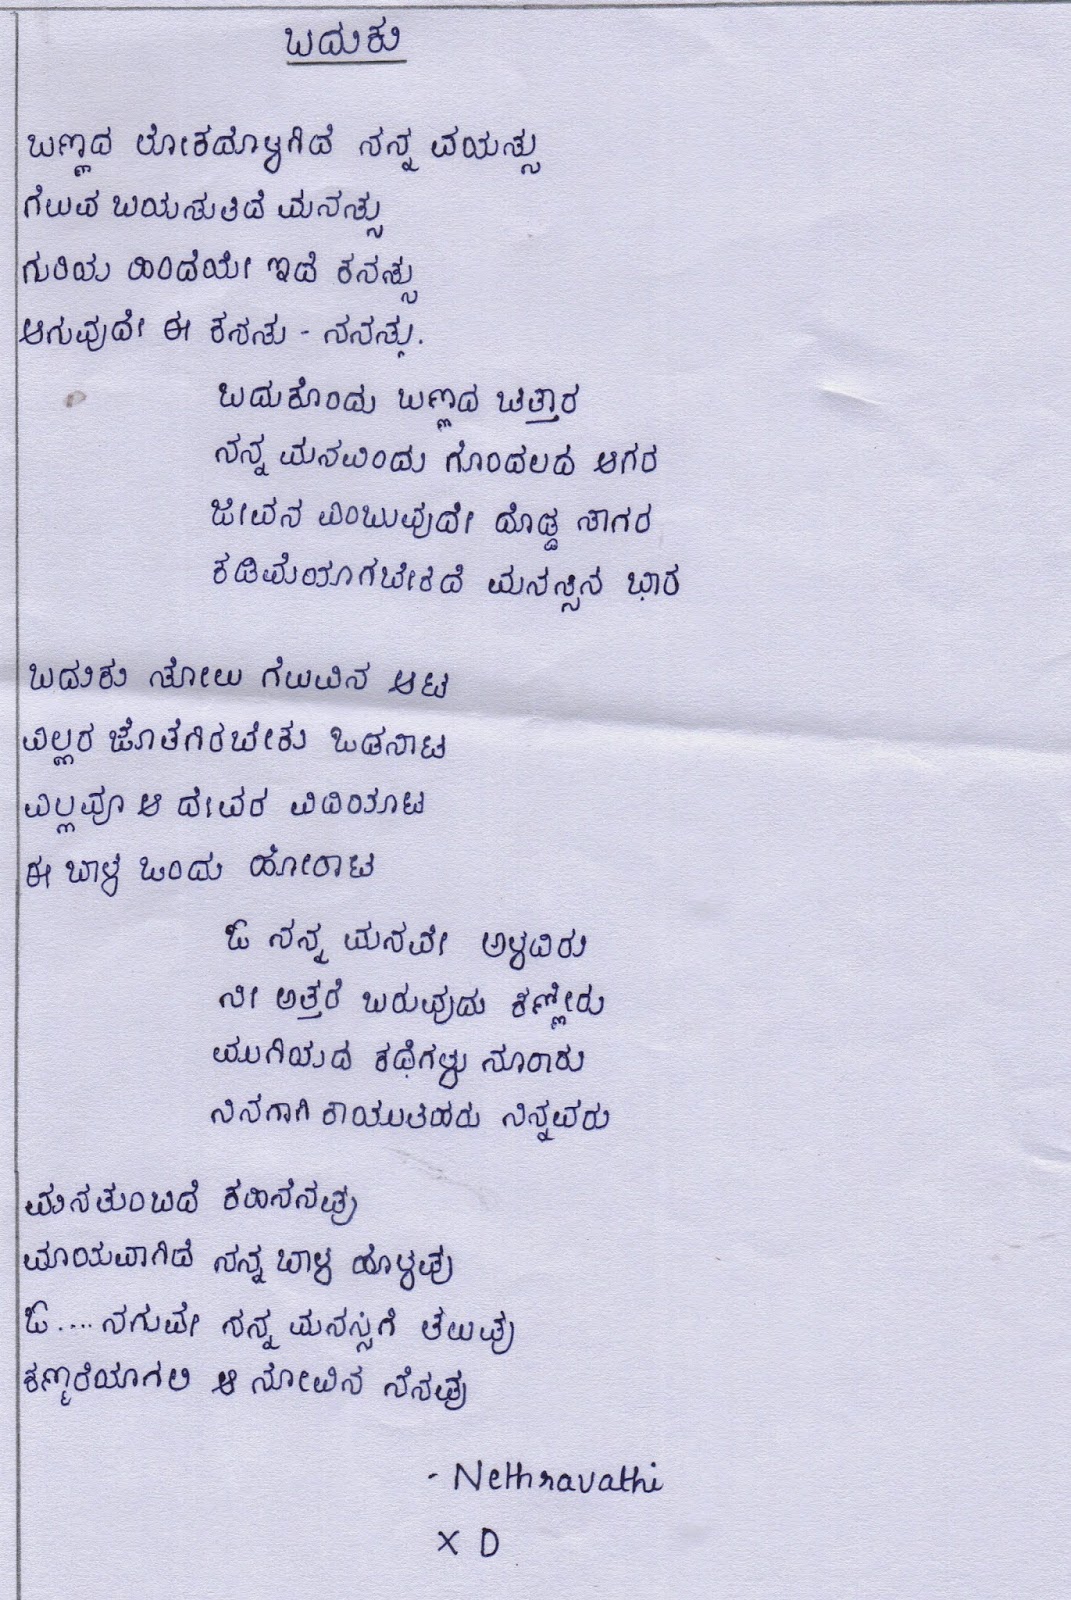 ಬದುಕು
ಬಣ್ಣದ ಲೋಕದೊಳಗಿದೆ ನನ್ನ ವಯಸ್ಸು
ಗೆಲುವ ಬಯಸುತಿದೆ ಮನಸ್ಸು
ಗುರಿಯ ಹಿಂದೆಯೇ ಇದೆ ಕನಸ್ಸು
ಆಗುವುದೇ ಈ ಕನಸು - ನನಸ್ಸು.
ಬದುಕೊಂದು ಬಣ್ಣದ ಚಿತ್ತಾರ
ನನ್ನ ಮನವಿಂದು ಗೊಂದಲದ ಆಗರ
ಜೀವನ ಎಂಬುವುದೇ ದೊಡ್ಡ ಸಾಗರ
ಕಡಿಮೆಯಾಗಬೇಕಿದೆ ಮನಸ್ಸಿನ ಭಾರ
ಬದುಕು ಸೋಲು ಗೆಲುವಿನ ಆಟ
ಎಲ್ಲರ ಜೊತೆಗಿರಬೇಕು ಒಡನಾಟ
ಎಲ್ಲವೂ ಆ ದೇವರ ವಿಧಿಯಾಟ
ಈ ಬಾಳೆ ಒಂದು ಹೋರಾಟ
ಓ ನನ್ನ ಮನವೇ ಅಳದಿರು
ನೀ ಅತ್ತರೆ ಬರುವುದು ಕಣ್ಣೀರು
ಮುಗಿಯದ ಕಥೆಗಳು ನೂರಾರು
ನಿನಗಾಗಿ ಕಾಯುತಿಹರು ನಿನ್ನವರು
ಮನತುಂಬಿದೆ ಕಹಿನೆನಪು
ಮಾಯವಾಗಿದೆ ನನ್ನ ಬಾಳ ಹೊಳಪು
ಓ.... ನಗುವೇ ನನ್ನ ಮನಸ್ಸಿಗೆ ತಲುಪು
ಕಣ್ಮರೆಯಾಗಲಿ ಆ ನೋವಿನ ನೆನಪು
- Nethravathi
X D